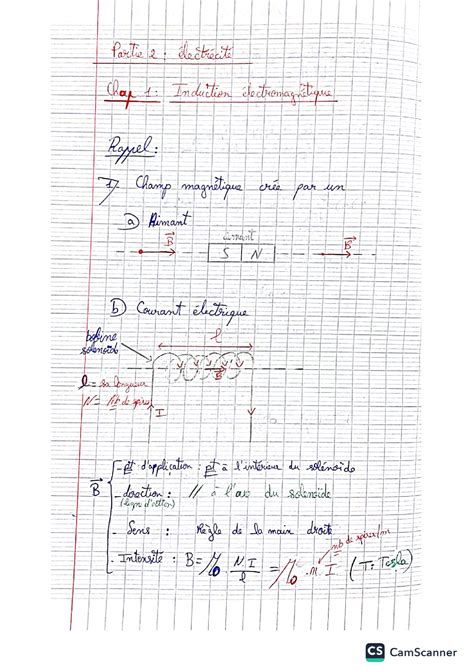 Partie 2 : électrecité
Chap 1 : Induction électromagnétique
Rappel :
1) Champ magnétique crée par un
a) Aimant
B aimant B
S N
b) Courant électrique
bobine l
solenoïde
B
l = sa longueur
N = Nb de spires I
B
- pt d'application : pt à l'intérieur du solénoide
- direction : // à l'axe du solenoïde
(ligne d'action)
- Sens : Règle de la main droite
nb de spires/m
- Intensité : B = μ₀ . N.I/l = μ₀ . n. I (T: Tesla)
CS CamScanner